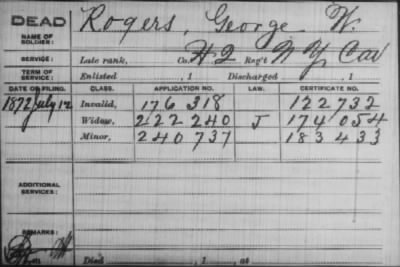 DEAD
NAME OF SOLDIER:
Rogers, George W.
SERVICE:
Late rank, Co. H 2 Reg't N Y Cav
TERM OF SERVICE:
Enlisted , 1 Discharged , 1
DATE OF FILING. CLASS. APPLICATION NO. LAW. CERTIFICATE NO.
1872 July 12 Invalid, 176 318 122732
Widow, 222 240 J 174 054
Minor, 240 737 183 433
ADDITIONAL SERVICES:
REMARKS:
Died , 1 , at